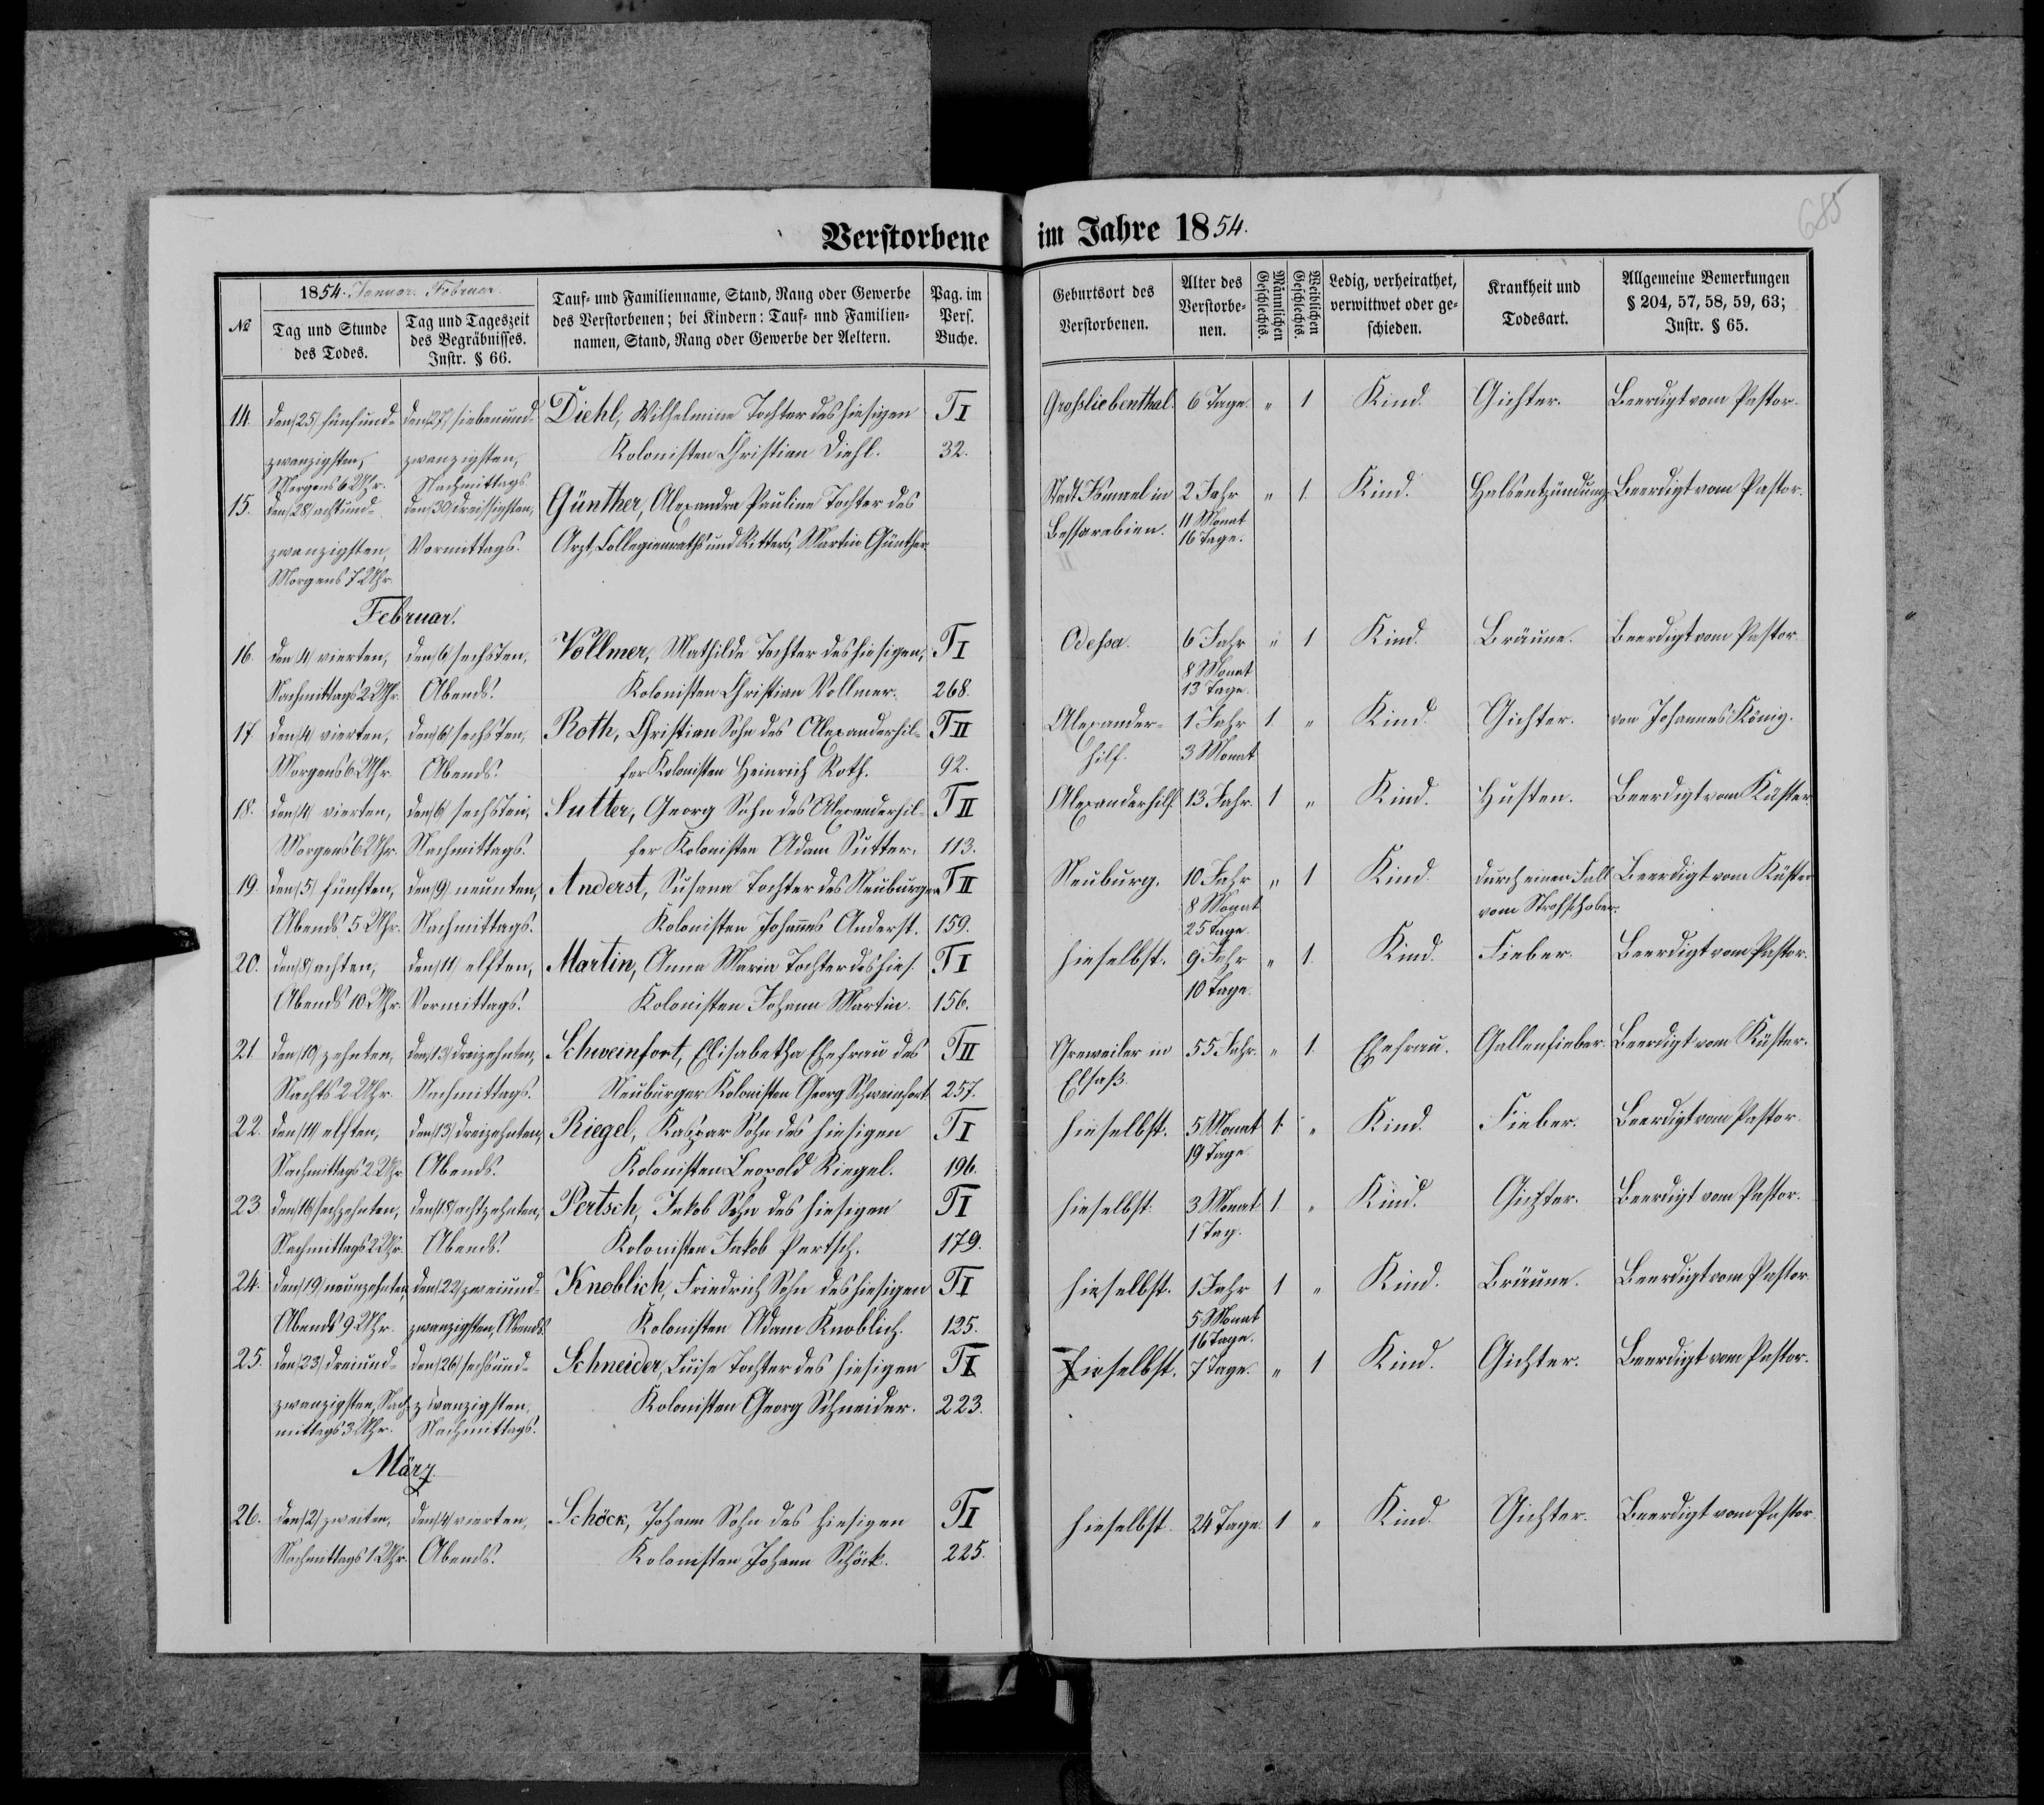 Verstorbene im Jahre 1854.
685
№
1854. Januar. Februar.
Tag und Stunde des Todes.
Tag und Tageszeit des Begräbnisses. Instr. § 66.
Tauf- und Familienname, Stand, Rang oder Gewerbe des Verstorbenen; bei Kindern: Tauf- und Familiennamen, Stand, Rang oder Gewerbe der Aeltern.
Pag. im Pers. Buche.
Geburtsort des Verstorbenen.
Alter des Verstorbenen.
Männlichen Geschlechts.
Weiblichen Geschlechts.
Ledig, verheirathet, verwittwet oder geschieden.
Krankheit und Todesart.
Allgemeine Bemerkungen § 204, 57, 58, 59, 63; Instr. § 65.
14. den (25) fünfund- den (27) siebenund- Diehl, Wilhelmine Tochter des hiesigen T I Großliebenthal. 6 Tage. " 1 Kind. Gichter. Beerdigt vom Pastor.
zwanzigsten, zwanzigsten, Kolonisten Christian Diehl. 32.
Morgens 6 Uhr. Nachmittags
15. den (28) achtund- den (30) dreissigsten, Günther, Alexandra Pauline Tochter des Stadt Ismael in 2 Jahr " 1. Kind. Halsentzündung. Beerdigt vom Pastor.
zwanzigsten, Vormittags. Arzt, Collegienraths und Ritters, Martin Günther. Bessarabien. 11 Monat
Morgens 7 Uhr. 16 Tage.
Februar.
16. den (4) vierten, den (6) sechsten, Vollmer, Mathilde Tochter des hiesigen, T I Odessa. 6 Jahr " 1 Kind. Bräune. Beerdigt vom Pastor.
Nachmittags 2 Uhr. Abends. Kolonisten Christian Vollmer. 268. 8 Monat
13 Tage.
17 den (4) vierten, den (6) sechsten, Roth, Christian Sohn des Alexanderhil- T II Alexander- 1 Jahr 1. " Kind. Gichter. von Johannes König.
Morgens 6 Uhr. Abends. fer Kolonisten Heinrich Roth. 92. hilf. 3 Monat
18. den (4) vierten, den (6) sechsten, Sutter, Georg Sohn des Alexanderhil- T II Alexanderhilf 13. Jahr. 1 " Kind. Husten. Beerdigt vom Küster
Morgens 6 Uhr. Nachmittags. fer Kolonisten Adam Sutter. 113.
19. den (5) fünften, den (9) neunten, Anderst, Susana Tochter des Neuburger T II Neuburg. 10 Jahr " 1 Kind. durch einen Fall Beerdigt vom Küster
Abends 5 Uhr. Nachmittags. Kolonisten Johannes Anderst. 159. 8 Monat vom Strohschober.
25 Tage.
20. den (8) achten, den (11) elften, Martin, Anna Maria Tochter des hies. T I hieselbst. 9 Jahr " 1. Kind. Fieber. Beerdigt vom Pastor.
Abends 10 Uhr. Vormittags. Kolonisten Johann Martin. 156. 10 Tage.
21. den (10) zehnten, den (13) dreizehnten, Schweinfort, Elisabetha Ehefrau des T II Greweiler in 55 Jahr. " 1. Ehefrau. Gallenfieber. Beerdigt vom Küster.
Nachts 2 Uhr. Nachmittags. Neuburger Kolonisten Georg Schweinfort 257. Elsaß.
22. den (11) elften, den (13) dreizehnten, Riegel, Kaspar Sohn des hiesigen T I hieselbst. 5 Monat 1. " Kind. Fieber. Beerdigt vom Pastor.
Nachmittags 2 Uhr Abends. Kolonisten Leopold Riegel. 196. 19 Tage.
23 den (16) sechzehnten, den (18) achtzehnten, Pertsch, Jakob Sohn des hiesigen T I hieselbst. 3 Monat 1 " Kind. Gichter. Beerdigt vom Pastor.
Nachmittags 2 Uhr. Abends. Kolonisten Jakob Pertsch. 179. 1 Tag.
24. den (19) neunzehnten, den (22) zweiund- Knoblich, Friedrich Sohn des hiesigen T I hieselbst. 1 Jahr 1 " Kind. Bräune. Beerdigt vom Pastor.
Abends 9 Uhr. zwanzigsten, Abends. Kolonisten Adam Knoblich. 125. 5 Monat
16 Tage.
25. den (23) dreiund- den (26) sechsund- Schneider, Luise Tochter des hiesigen T I hieselbst. 7 Tage. " 1 Kind. Gichter. Beerdigt vom Pastor.
zwanzigsten, Nach- zwanzigsten, Kolonisten Georg Schneider. 223.
mittags 3 Uhr. Nachmittags.
März.
26. den (2) zweiten, den (4) vierten, Schöck, Johann Sohn des hiesigen T I hieselbst. 24 Tage. 1 " Kind. Gichter. Beerdigt vom Pastor.
Nachmittags 1 Uhr. Abends. Kolonisten Johann Schöck. 225.